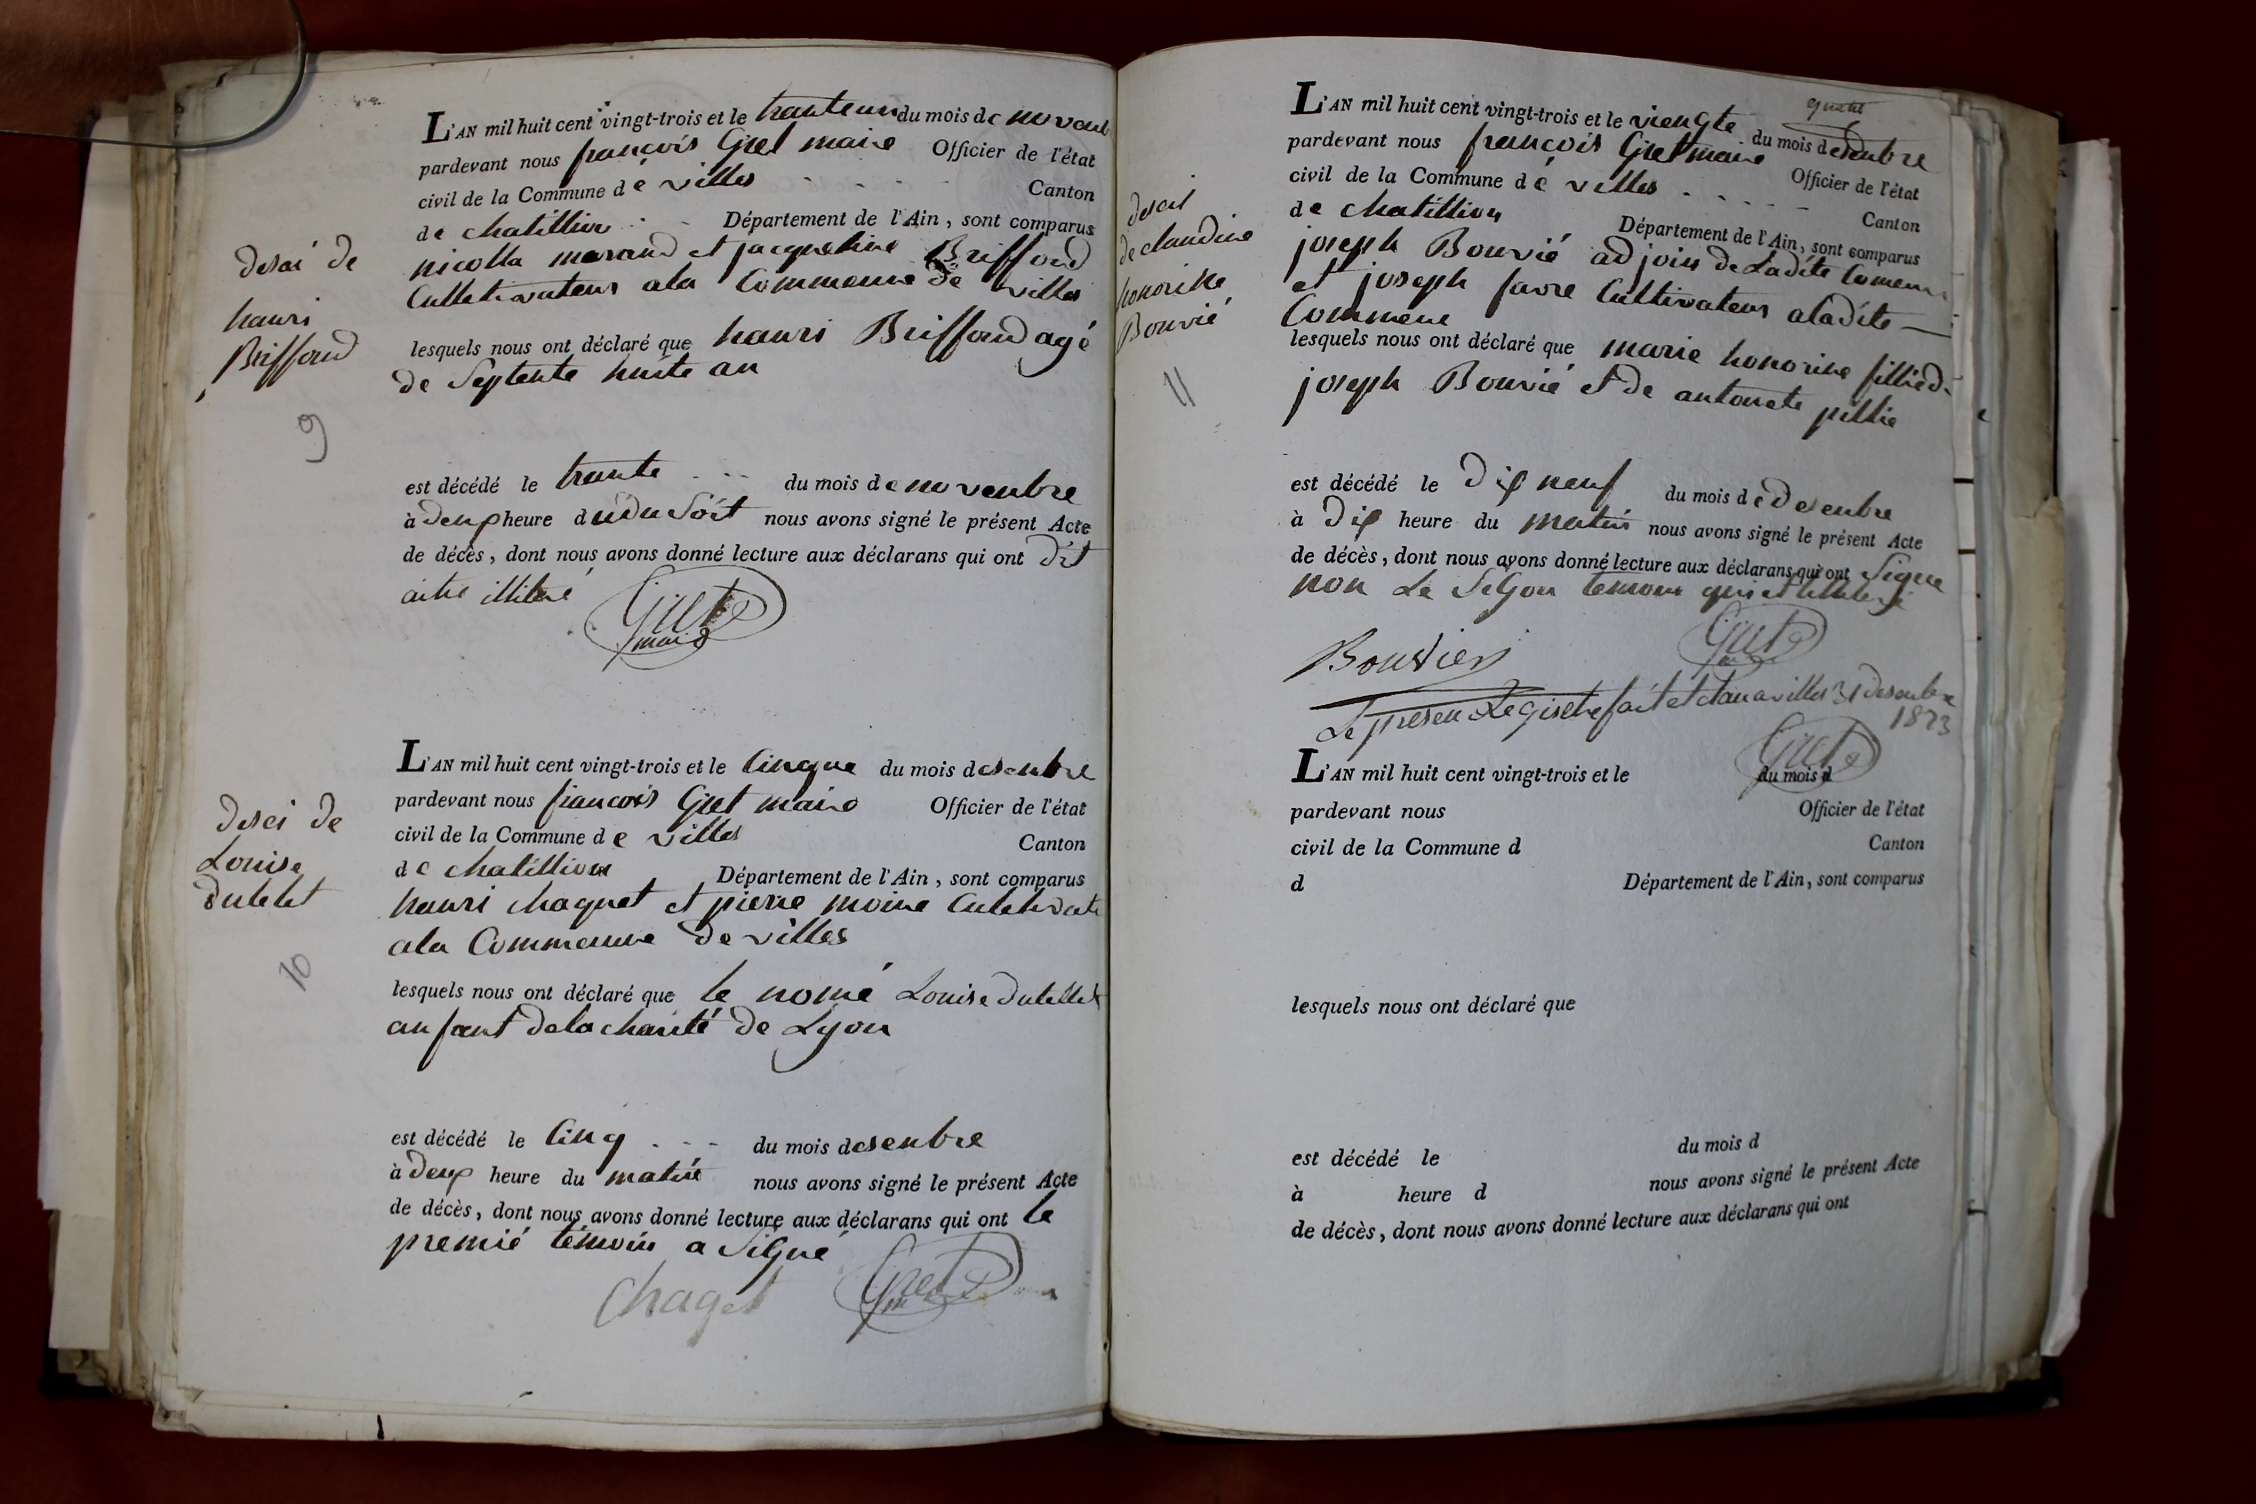 L'AN mil huit cent vingt-trois et le tranteun du mois de novenb
pardevant nous francois Gret maire Officier de l'état
civil de la Commune de villes Canton
de chatillion Département de l'Ain, sont comparus
nicolla marand et jacqueline Briffond
Culletivateurs ala Commenne de villes
lesquels nous ont déclaré que hanri Briffond agé
de Septente huite an
est décédé le trante du mois de novenbre
à deux heure du du Soit nous avons signé le présent Acte
de décès, dont nous avons donné lecture aux déclarans qui ont dit
aitre illiteré
Gret
maire
desai de
hanri
Briffond
9
L'AN mil huit cent vingt-trois et le Cinque du mois desenbre
pardevant nous francois Gret maire Officier de l'état
civil de la Commune de villes Canton
de chatillion Département de l'Ain, sont comparus
hanri chaquet et pierre moine Culetivate
ala Commenne de villes
lesquels nous ont déclaré que le nomé Louise dutellet
anfant dela charité de Lyon
est décédé le Cinq du mois desenbre
à deux heure du matin nous avons signé le présent Acte
de décès, dont nous avons donné lecture aux déclarans qui ont le
premié témoin a Signé
Chaget Gret
desei de
Louise
dutelet
10
L'AN mil huit cent vingt-trois et le viengte quatre du mois desenbre
pardevant nous francois Gret maire Officier de l'état
civil de la Commune de villes Canton
de chatillion Département de l'Ain, sont comparus
joseph Bouvié adjoin de Ladite Comeun
et joseph favre Cultivateurs aladite
Commene
lesquels nous ont déclaré que marie honorine fillied
joseph Bouvié et de antonete pillie
est décédé le dix neuf du mois de desenbre
à dix heure du matin nous avons signé le présent Acte
de décès, dont nous avons donné lecture aux déclarans qui ont Signe
non Le Segon temoin qui et illiteré
Bouvier Gret
Le presen Regisetre fait et clau a villes 31 desenbre
1823
Gret
desei
de claudine
honorine
Bouvié
11
L'AN mil huit cent vingt-trois et le du mois d
pardevant nous Officier de l'état
civil de la Commune d Canton
d Département de l'Ain, sont comparus
lesquels nous ont déclaré que
est décédé le du mois d
à heure d nous avons signé le présent Acte
de décès, dont nous avons donné lecture aux déclarans qui ont